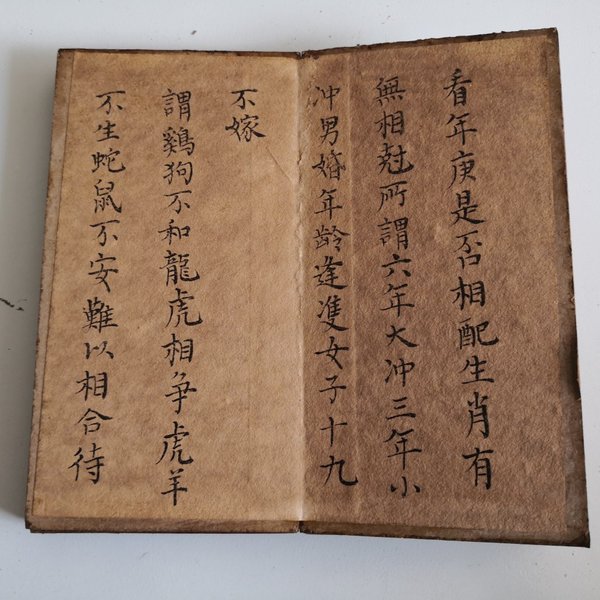 看年庚是否相配生肖有
無相尅所謂六年大冲三年小
冲男婚年龄逢隻女子十九
不嫁
謂鷄狗不和龍虎相争虎羊
不生蛇鼠不安難以相合待